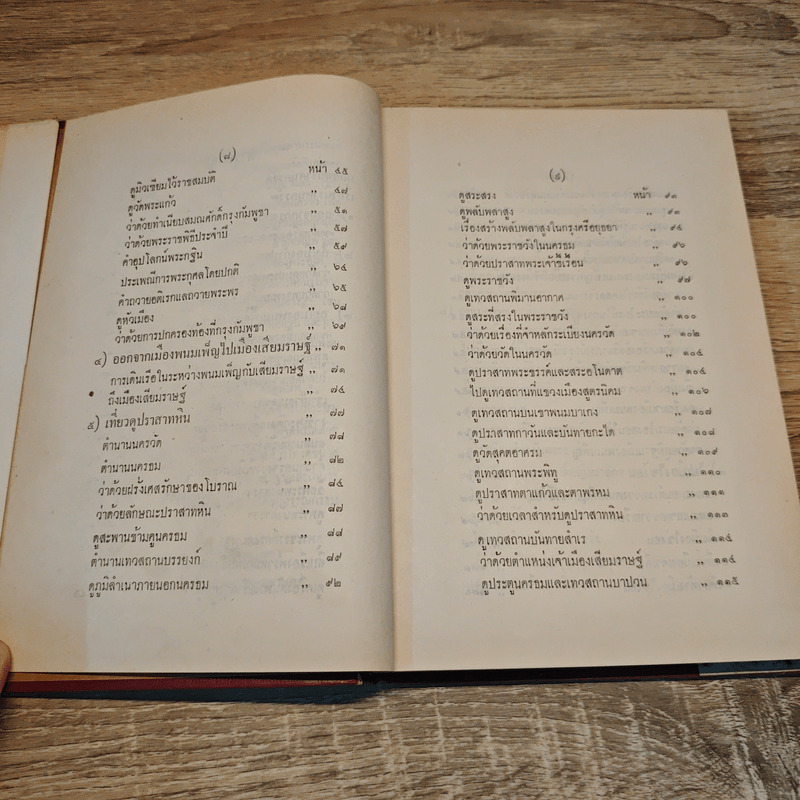 (๘)
ดูมิวเซียมไว้ราชสมบัติ หน้า ๔๕
ดูวัดพระแก้ว ,, ๔๗
ว่าด้วยทำเนียบสมณศักดิ์กรุงกัมพูชา ,, ๕๑
ว่าด้วยพระราชพิธีประจำปี ,, ๕๗
คำอุปโลกน์พระกฐิน ,, ๕๙
ประเพณีการพระกุศลโดยปกติ ,, ๖๔
คำถวายอติเรกแลถวายพระพร ,, ๖๕
ดูหัวเมือง ,, ๖๘
ว่าด้วยการปกครองท้องที่กรุงกัมพูชา ,, ๖๙
๔) ออกจากเมืองพนมเพ็ญไปเมืองเสียมราษฎร์ ,, ๗๑
การเดินเรือในระหว่างพนมเพ็ญกับเสียมราษฎร์ ,, ๗๑
ถึงเมืองเสียมราษฎร์ ,, ๗๔
๕) เที่ยวดูปราสาทหิน ,, ๗๗
ตำนานนครวัด ,, ๗๘
ตำนานนครธม ,, ๘๒
ว่าด้วยฝรั่งเศสรักษาของโบราณ ,, ๘๔
ว่าด้วยลักษณะปราสาทหิน ,, ๘๗
ดูสะพานข้ามคูนครธม ,, ๘๘
ตำนานเทวสถานบรรยงก์ ,, ๘๙
ดูภูมิลำเนาภายนอกนครธม ,, ๙๒
(๙)
ดูสระสรง หน้า ๙๓
ดูพลับพลาสูง ,, ๙๓
เรื่องสร้างพลับพลาสูงในกรุงศรีอยุธยา ,, ๙๔
ว่าด้วยพระราชวังในนครธม ,, ๙๖
ว่าด้วยปราสาทพระเจ้าขี้เรื้อน ,,
ดูพระราชวัง ,, ๙๗
ดูเทวสถานพิมานอากาศ ,, ๑๐๐
ดูสระที่สรงในพระราชวัง ,, ๑๐๐
ว่าด้วยเรื่องที่จำหลักระเบียงนครวัด ,, ๑๐๒
ว่าด้วยวัดในนครวัด ,, ๑๐๔
ดูปราสาทพระขรรค์และสระอโนดาต ,, ๑๐๔
ไปดูเทวสถานที่แขวงเมืองสูตรนิคม ,, ๑๐๖
ดูเทวสถานบนเขาพนมบาเกง ,, ๑๐๗
ดูปราสาทกาวันและบันทายกะได ,, ๑๐๘
ดูวัดสุคตอาศรม ,, ๑๐๙
ดูเทวสถานพระพิทู ,, ๑๑๐
ดูปราสาทตาแก้วและตาพรหม ,, ๑๑๑
ว่าด้วยเวลาสำหรับดูปราสาทหิน ,, ๑๑๓
ดูเทวสถานบันทายสำเร ,, ๑๑๔
ว่าด้วยตำแหน่งเจ้าเมืองเสียมราษฎร์ ,, ๑๑๔
ดูประตูนครธมและเทวสถานบาปวน ,, ๑๑๕